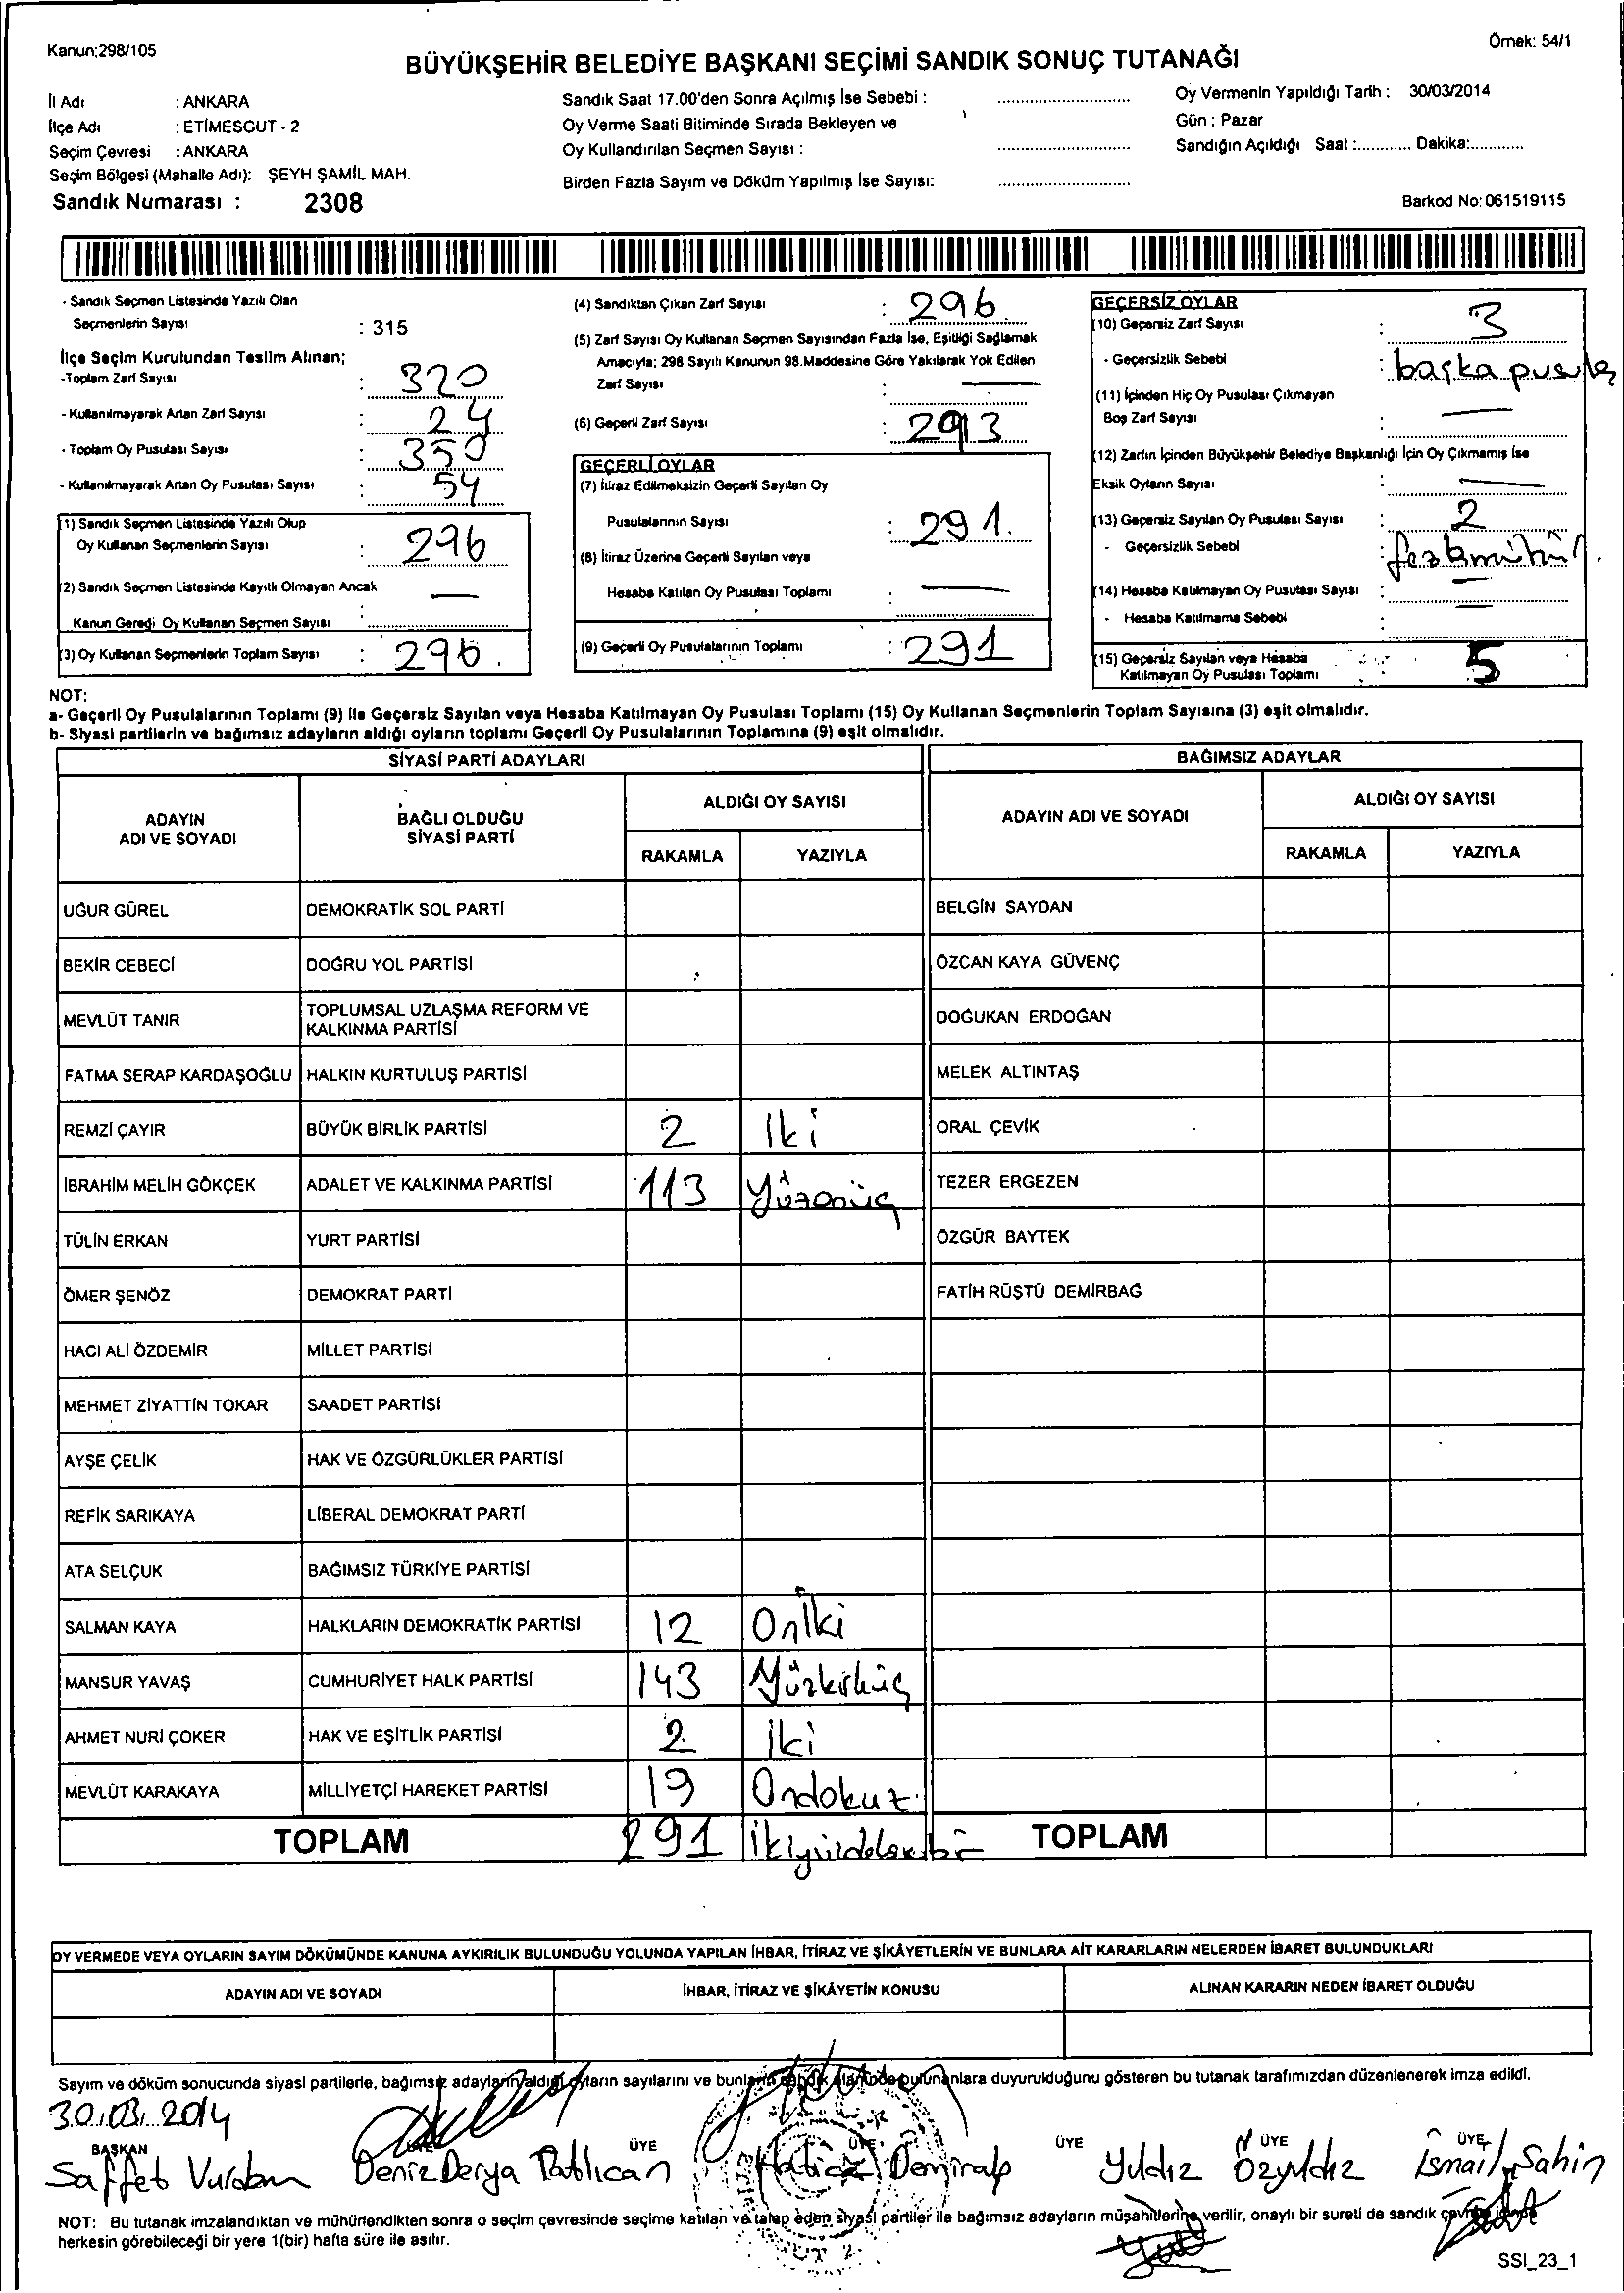 Kanun;298/105
Örnek: 54/1
BÜYÜKŞEHİR BELEDİYE BAŞKANI SEÇİMİ SANDIK SONUÇ TUTANAĞI
İl Adı : ANKARA
İlçe Adı : ETİMESGUT - 2
Seçim Çevresi : ANKARA
Seçim Bölgesi (Mahalle Adı): ŞEYH ŞAMİL MAH.
Sandık Numarası : 2308
Sandık Saat 17.00'den Sonra Açılmış İse Sebebi :
Oy Verme Saati Bitiminde Sırada Bekleyen ve
Oy Kullandırılan Seçmen Sayısı :
Birden Fazla Sayım ve Döküm Yapılmış İse Sayısı:
Oy Vermenin Yapıldığı Tarih : 30/03/2014
Gün : Pazar
Sandığın Açıldığı Saat :............ Dakika:............
Barkod No: 061519115
- Sandık Seçmen Listesinde Yazılı Olan
Seçmenlerin Sayısı : 315
İlçe Seçim Kurulundan Teslim Alınan;
-Toplam Zarf Sayısı : 320
- Kullanılmayarak Artan Zarf Sayısı : 24
- Toplam Oy Pusulası Sayısı : 350
- Kullanılmayarak Artan Oy Pusulası Sayısı : 54
(1) Sandık Seçmen Listesinde Yazılı Olup
Oy Kullanan Seçmenlerin Sayısı : 296
(2) Sandık Seçmen Listesinde Kayıtlı Olmayan Ancak
Kanun Gereği Oy Kullanan Seçmen Sayısı : —
(3) Oy Kullanan Seçmenlerin Toplam Sayısı : 296.
(4) Sandıktan Çıkan Zarf Sayısı : 296
(5) Zarf Sayısı Oy Kullanan Seçmen Sayısından Fazla İse, Eşitliği Sağlamak
Amacıyla; 298 Sayılı Kanunun 98.Maddesine Göre Yakılarak Yok Edilen
Zarf Sayısı : —
(6) Geçerli Zarf Sayısı : 293
GEÇERLİ OYLAR
(7) İtiraz Edilmeksizin Geçerli Sayılan Oy
Pusulalarının Sayısı : 291.
(8) İtiraz Üzerine Geçerli Sayılan veya
Hesaba Katılan Oy Pusulası Toplamı : —
(9) Geçerli Oy Pusulalarının Toplamı : 291
GEÇERSİZ OYLAR
(10) Geçersiz Zarf Sayısı : 3
- Geçersizlik Sebebi : başka pusula
(11) İçinden Hiç Oy Pusulası Çıkmayan
Boş Zarf Sayısı : —
(12) Zarfın İçinden Büyükşehir Belediye Başkanlığı İçin Oy Çıkmamış İse
Eksik Oyların Sayısı : —
(13) Geçersiz Sayılan Oy Pusulası Sayısı : 2
- Geçersizlik Sebebi :
(14) Hesaba Katılmayan Oy Pusulası Sayısı : —
- Hesaba Katılmama Sebebi : —
(15) Geçersiz Sayılan veya Hesaba
Katılmayan Oy Pusulası Toplamı : 5
NOT:
a- Geçerli Oy Pusulalarının Toplamı (9) ile Geçersiz Sayılan veya Hesaba Katılmayan Oy Pusulası Toplamı (15) Oy Kullanan Seçmenlerin Toplam Sayısına (3) eşit olmalıdır.
b- Siyasi partilerin ve bağımsız adayların aldığı oyların toplamı Geçerli Oy Pusulalarının Toplamına (9) eşit olmalıdır.
SİYASİ PARTİ ADAYLARI
BAĞIMSIZ ADAYLAR
ADAYIN
ADI VE SOYADI
BAĞLI OLDUĞU
SİYASİ PARTİ
ALDIĞI OY SAYISI
RAKAMLA YAZIYLA
ADAYIN ADI VE SOYADI
ALDIĞI OY SAYISI
RAKAMLA YAZIYLA
UĞUR GÜREL DEMOKRATİK SOL PARTİ BELGİN SAYDAN
BEKİR CEBECİ DOĞRU YOL PARTİSİ ÖZCAN KAYA GÜVENÇ
MEVLÜT TANIR TOPLUMSAL UZLAŞMA REFORM VE
KALKINMA PARTİSİ DOĞUKAN ERDOĞAN
FATMA SERAP KARDAŞOĞLU HALKIN KURTULUŞ PARTİSİ MELEK ALTINTAŞ
REMZİ ÇAYIR BÜYÜK BİRLİK PARTİSİ 2 İki ORAL ÇEVİK
İBRAHİM MELİH GÖKÇEK ADALET VE KALKINMA PARTİSİ 113 Yüzonüç TEZER ERGEZEN
TÜLİN ERKAN YURT PARTİSİ ÖZGÜR BAYTEK
ÖMER ŞENÖZ DEMOKRAT PARTİ FATİH RÜŞTÜ DEMİRBAĞ
HACI ALİ ÖZDEMİR MİLLET PARTİSİ
MEHMET ZİYATTİN TOKAR SAADET PARTİSİ
AYŞE ÇELİK HAK VE ÖZGÜRLÜKLER PARTİSİ
REFİK SARIKAYA LİBERAL DEMOKRAT PARTİ
ATA SELÇUK BAĞIMSIZ TÜRKİYE PARTİSİ
SALMAN KAYA HALKLARIN DEMOKRATİK PARTİSİ 12 Oniki
MANSUR YAVAŞ CUMHURİYET HALK PARTİSİ 143 Yüzkırküç
AHMET NURİ ÇOKER HAK VE EŞİTLİK PARTİSİ 2 iki
MEVLÜT KARAKAYA MİLLİYETÇİ HAREKET PARTİSİ 19 Ondokuz
TOPLAM 291 İkiyüzdoksanbir TOPLAM
OY VERMEDE VEYA OYLARIN SAYIM DÖKÜMÜNDE KANUNA AYKIRILIK BULUNDUĞU YOLUNDA YAPILAN İHBAR, İTİRAZ VE ŞİKÂYETLERİN VE BUNLARA AİT KARARLARIN NELERDEN İBARET BULUNDUKLARI
ADAYIN ADI VE SOYADI İHBAR, İTİRAZ VE ŞİKÂYETİN KONUSU ALINAN KARARIN NEDEN İBARET OLDUĞU
Sayım ve döküm sonucunda siyasi partilerle, bağımsız adayların aldığı oyların sayılarını ve bunların sandık alanında bulunanlara duyurulduğunu gösteren bu tutanak tarafımızdan düzenlenerek imza edildi.
30.03.2014
BAŞKAN ÜYE ÜYE ÜYE ÜYE ÜYE
Saffet Vurdan Deniz Derya Patlıcan Hatice Demiralp Yıldız Özyıldız İsmail Şahin
NOT: Bu tutanak imzalandıktan ve mühürlendikten sonra o seçim çevresinde seçime katılan ve talep eden siyasi partiler ile bağımsız adayların müşahitlerine verilir, onaylı bir sureti de sandık çevresinde
herkesin görebileceği bir yere 1(bir) hafta süre ile asılır.
SSI_23_1